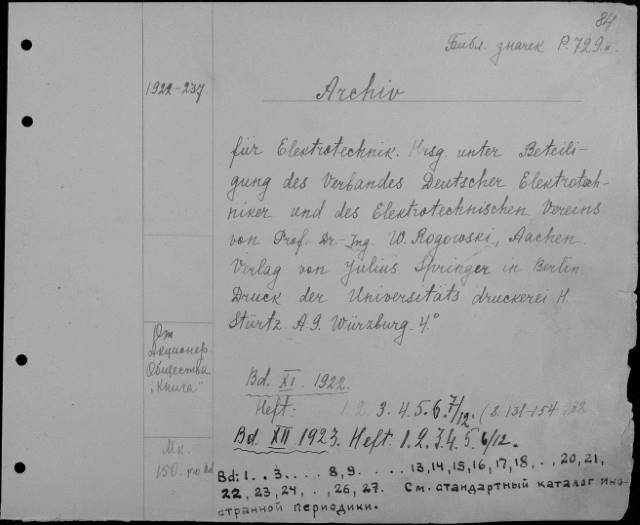 84
Библ. значек P.729
1922-237.
Archiv
für Elektrotechnik. Hrsg. unter Beteili-
gung des Verbandes Deutscher Elektrotech-
niker und des Elektrotechnischen Vereins
von Prof. Dr-Ing. W. Rogowski, Aachen.
Verlag von Julius Springer in Berlin
Druck der Universitäts druckerei H.
Stürtz A.G. Würzburg. 4°
От
Акционер.
Общества
"Книга"
Bd. XI. 1922.
Heft: 1. 2. 3. 4. 5. 6. 7/12. (S. 131-154
Bd. XII 1923. Heft. 1. 2. 3. 4. 5. 6/12.
Мк.
150.
Bd: 1 . . 3 . . . . 8, 9 . . . . . 13, 14, 15, 16, 17, 18, . ., 20, 21,
22, 23, 24, . ., 26, 27. См. стандартный каталог ино-
странной периодики.